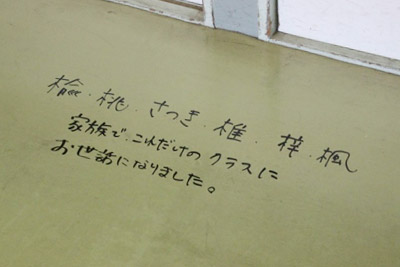 桧・桃・さつき・椎・梓・楓
家族で、これだけの クラスに
お世話になりました。